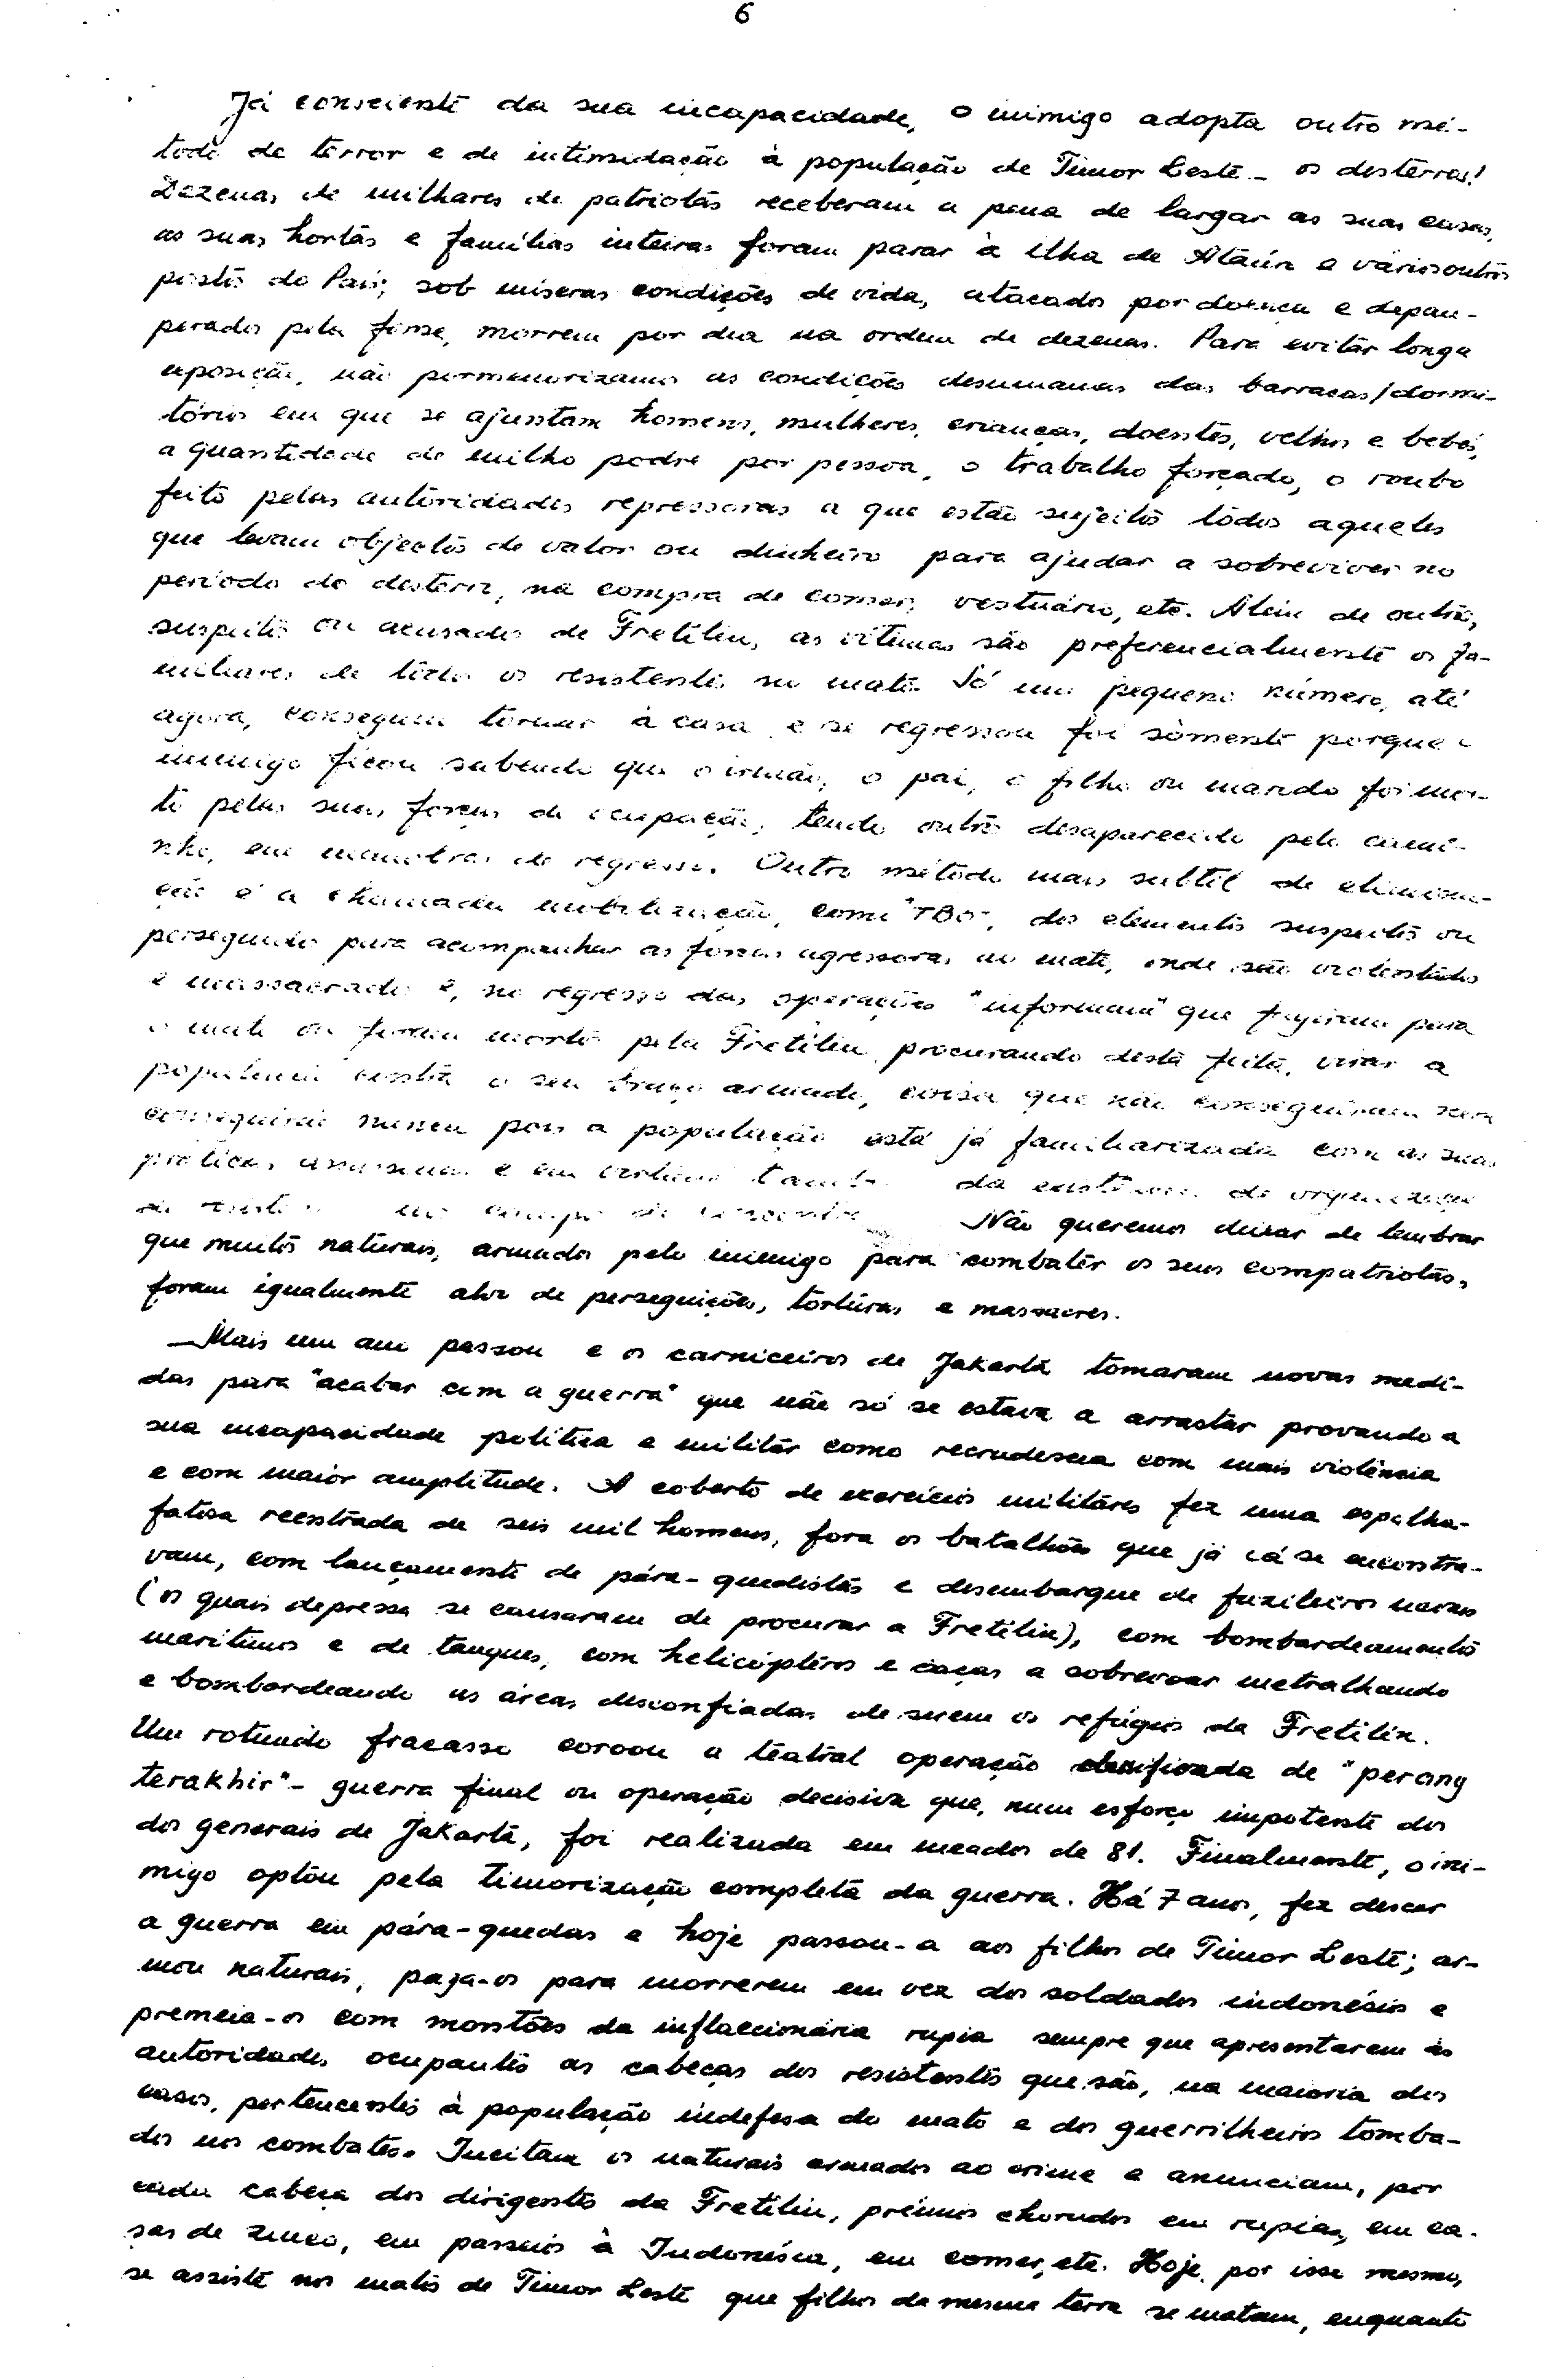 6
Já consciente da sua incapacidade, o inimigo adopta outro mé-
todo de terror e de intimidação à população de Timor Leste - os desterros!
Dezenas de milhares de patriotas receberam a pena de largar as suas casas,
as suas hortas e famílias inteiras foram parar à ilha de Ataúro e vários outros
postos do País; sob míseras condições de vida, atacados por doença e depau-
perados pela fome, morrem por dia na ordem de dezenas. Para evitar longa
exposição, não pormenorizamos as condições desumanas das barracas/dormi-
tórios em que se ajuntam homens, mulheres, crianças, doentes, velhos e bebés,
a quantidade de milho podre por pessoa, o trabalho forçado, o roubo
feito pelas autoridades repressoras a que estão sujeitos todos aqueles
que levam objectos de valor ou dinheiro para ajudar a sobreviver no
período do desterro, na compra de comer, vestuário, etc. Além de outros,
suspeitos ou acusados de Fretilin, as vítimas são preferencialmente os fa-
miliares de todos os resistentes no mato. Só um pequeno número, até
agora, conseguiu tornar à casa e se regressou foi sòmente porque o
inimigo ficou sabendo que o irmão, o pai, o filho ou marido foi mor-
to pelas suas forças de ocupação, tendo outros desaparecido pelo cami-
nho, em manobras de regresso. Outro método mais subtil de elimina-
ção é a chamada mobilização, como "TBO", dos elementos suspeitos ou
perseguidos para acompanhar as forças agressoras ao mato, onde são violentados
e massacrados e, no regresso das operações "informam" que fugiram para
o mato ou foram mortos pela Fretilin, procurando desta feita, virar a
população contra o seu braço armado, coisa que não conseguiram nem
conseguirão nunca pois a população está já familiarizada com as suas
práticas assassinas e em da existência de
de Não queremos deixar de lembrar
que muitos naturais, armados pelo inimigo para combater os seus compatriotas,
foram igualmente alvo de perseguições, torturas e massacres.
— Mais um ano passou e os carniceiros de Jakarta tomaram novas medi-
das para "acabar com a guerra" que não só se estava a arrastar provando a
sua incapacidade política e militar como recrudescia com mais violência
e com maior amplitude. A coberto de exercícios militares fez uma espalha-
fatosa reentrada de seis mil homens, fora os batalhões que já cá se encontra-
vam, com lançamento de pára-quedistas e desembarque de fuzileiros navais
(os quais depressa se cansaram de procurar a Fretilin), com bombardeamentos
marítimos e de tanques, com helicópteros e caças a sobrevoar metralhando
e bombardeando as áreas desconfiadas de serem os refúgios da Fretilin.
Um rotundo fracasso coroou a teatral operação classificada de "perang
terakhir" - guerra final ou operação decisiva que, num esforço impotente dos
dos generais de Jakarta, foi realizada em meados de 81. Finalmente, o ini-
migo optou pela timorização completa da guerra. Há 7 anos, fez descer
a guerra em pára-quedas e hoje passou-a aos filhos de Timor Leste; ar-
mou naturais, paga-os para morrerem em vez dos soldados indonésios e
premeia-os com montões da inflaccionária rupia sempre que apresentarem às
autoridades ocupantes as cabeças dos resistentes que são, na maioria dos
casos, pertencentes à população indefesa do mato e dos guerrilheiros tomba-
dos nos combates. Incitam os naturais armados ao crime e anunciam, por
cada cabeça dos dirigentes da Fretilin, prémios chorudos em rupias, em ca-
sas de zinco, em passeios à Indonésia, em comer, etc. Hoje, por isso mesmo,
se assiste nos matos de Timor Leste que filhos da mesma terra se matam, enquanto